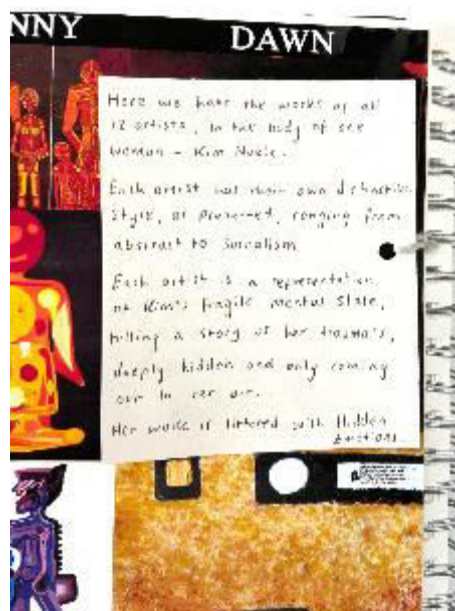 NNY
DAWN
Here we have the works of all
12 artists, in the body of one
woman - Kim Noble.
Each artist has their own distinctive
style, as presented, ranging from
abstract to surealism
Each artist is a representation
of Kim's fragile mental state,
telling a story of her traumas,
deeply hidden and only coming
out in her art.
Her work is littered with Hidden
Emotions